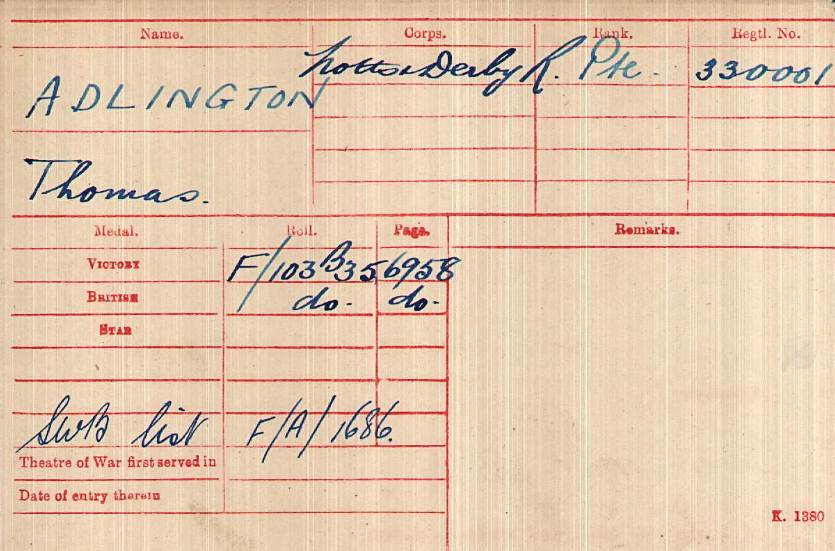 Name. Corps. Rank. Regtl. No.
Notts & Derby R. Pte. 330001
ADLINGTON
Thomas.
Medal. Roll. Page. Remarks.
VICTORY F/103 B35 6958
BRITISH do. do.
STAR
SWB list F/A/1686.
Theatre of War first served in
Date of entry therein
K. 1380